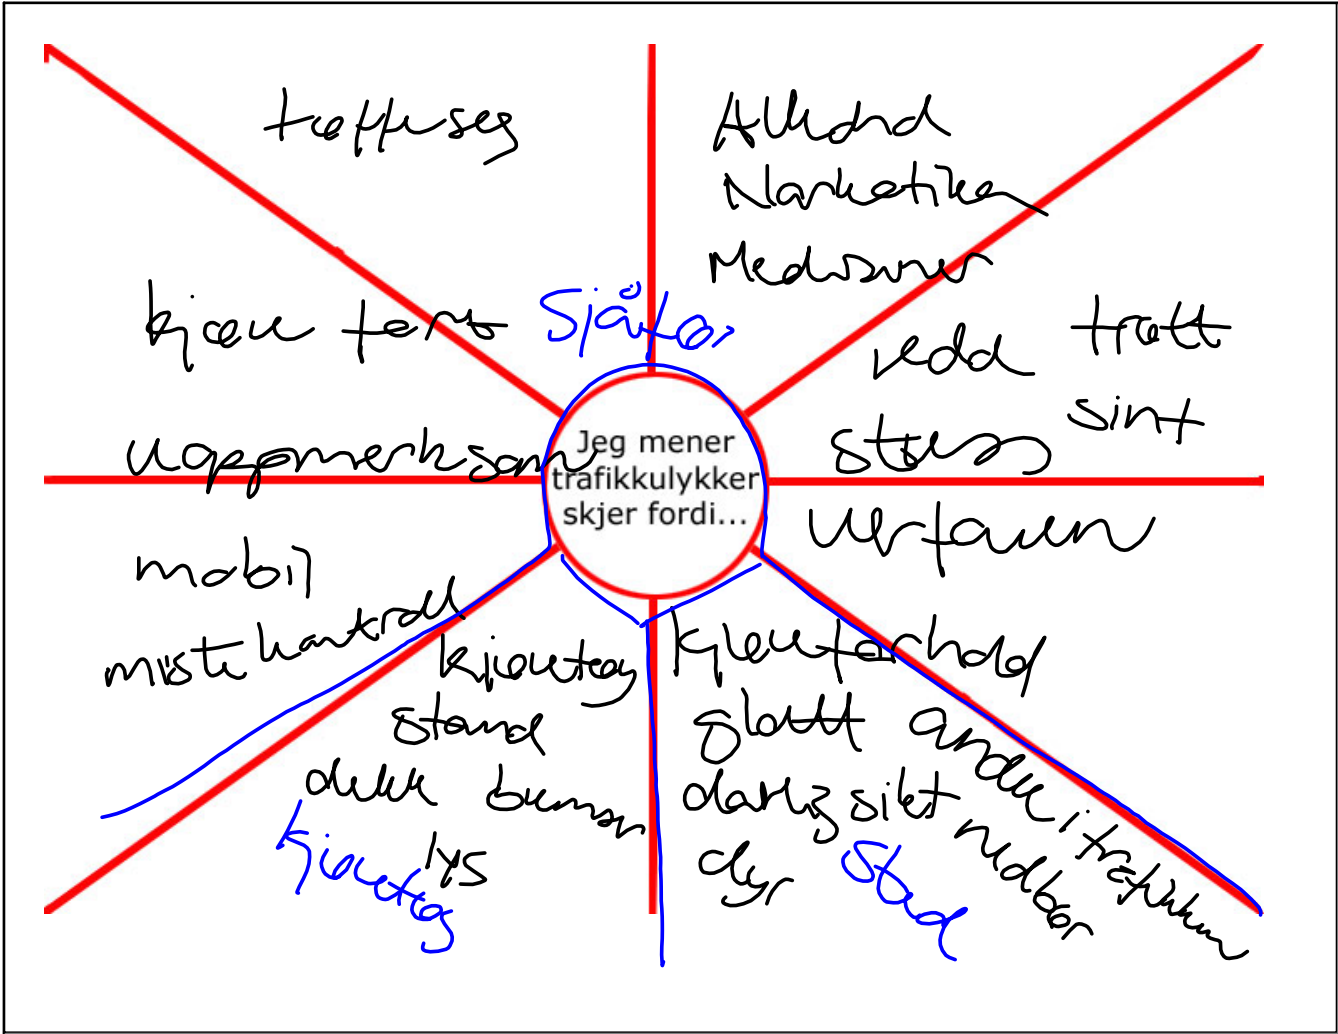 tøffe seg
Alkohol
Narkotika
Medisiner
kjøre fort
Sjåfør
redd
trøtt
stress
sint
uoppmerksom
Jeg mener
trafikkulykker
skjer fordi...
uerfaren
mobil
miste kontroll
kjøretøy
stand
dekk
bremser
lys
kjøretøy
Kjøreforhold
glatt
dårlig sikt
dyr
andre i trafikken
nedbør
Sted